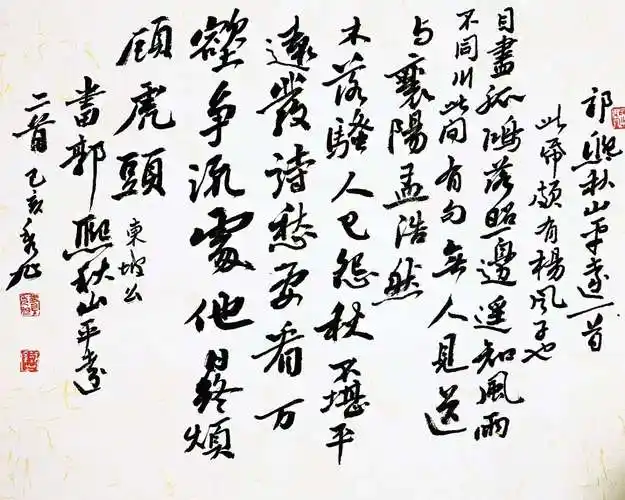 祁熙秋山平遠一首
此帋頗有楊風子也
目盡孤鴻落照邊遥知風雨
不同川此間有句無人見送
与襄陽孟浩然
木落騷人已怨秋不堪平
遠發詩愁要看万
壑争流處他日終煩
顧虎頭
東坡公
書郭熙秋山平遠
二首 乙亥